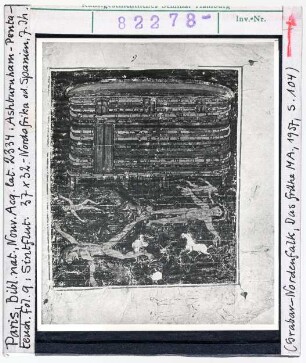 Kunstgeschichtliches Seminar Hamburg
82278- Inv.-Nr.
Paris, Bibl. nat. Nouv. Acq. lat. 2334. Ashburnham-Penta-
teuch. fol. 9: Sintflut. 37 x 32 - Nordafrika od. Spanien, 7. Jh.
9
(Grabar-Nordenfalk, Das frühe MA, 1957, S. 104)